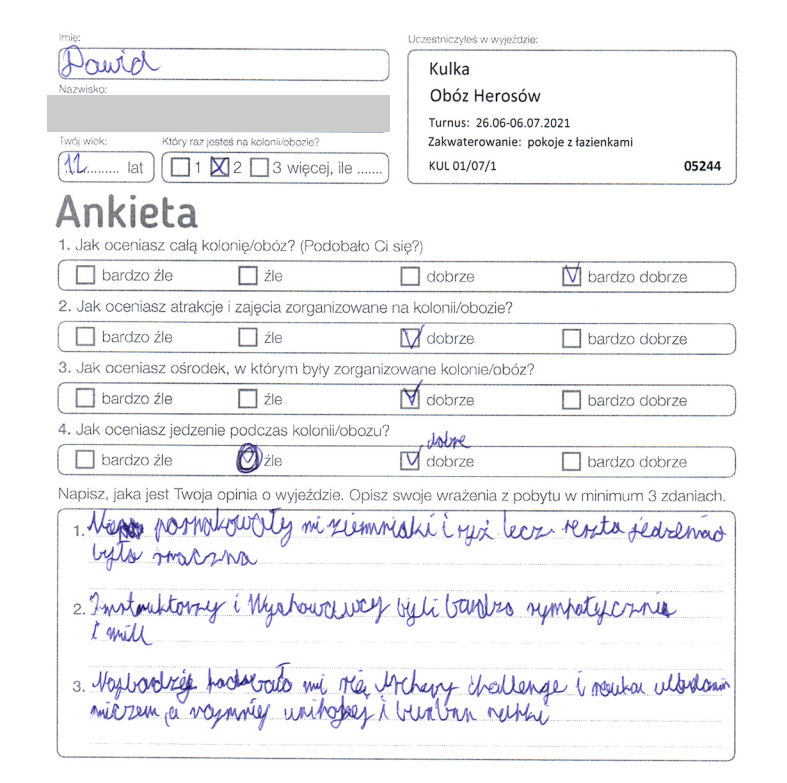 Imię:
Dawid
Uczestniczyłeś w wyjeździe:
Kulka
Obóz Herosów
Turnus: 26.06-06.07.2021
Zakwaterowanie: pokoje z łazienkami
KUL 01/07/1 05244
Nazwisko:
Twój wiek: Który raz jesteś na kolonii/obozie?
12 lat 1 2 3 więcej, ile .......
Ankieta
1. Jak oceniasz całą kolonię/obóz? (Podobało Ci się?)
bardzo źle źle dobrze bardzo dobrze
2. Jak oceniasz atrakcje i zajęcia zorganizowane na kolonii/obozie?
bardzo źle źle dobrze bardzo dobrze
3. Jak oceniasz ośrodek, w którym były zorganizowane kolonie/obóz?
bardzo źle źle dobrze bardzo dobrze
4. Jak oceniasz jedzenie podczas kolonii/obozu?
dobre
bardzo źle źle dobrze bardzo dobrze
Napisz, jaka jest Twoja opinia o wyjeździe. Opisz swoje wrażenia z pobytu w minimum 3 zdaniach.
1. Nie posmakowały mi ziemniaki i ryż lecz reszta jedzenia
było smaczna
2. Instruktorzy i Wychowawcy byli bardzo sympatycznie
I mili
3. Najbardzej podobało mi się Archery challenge i nauka władania
mieczem, a najmniej unihokej i